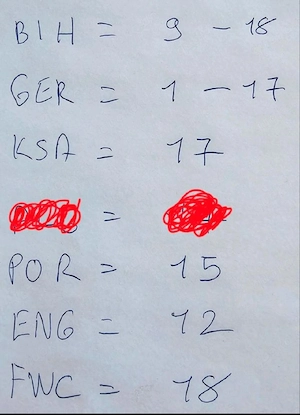 BIH = 9 - 18
GER = 1 - 17
KSA = 17
=
POR = 15
ENG = 12
FWC = 18